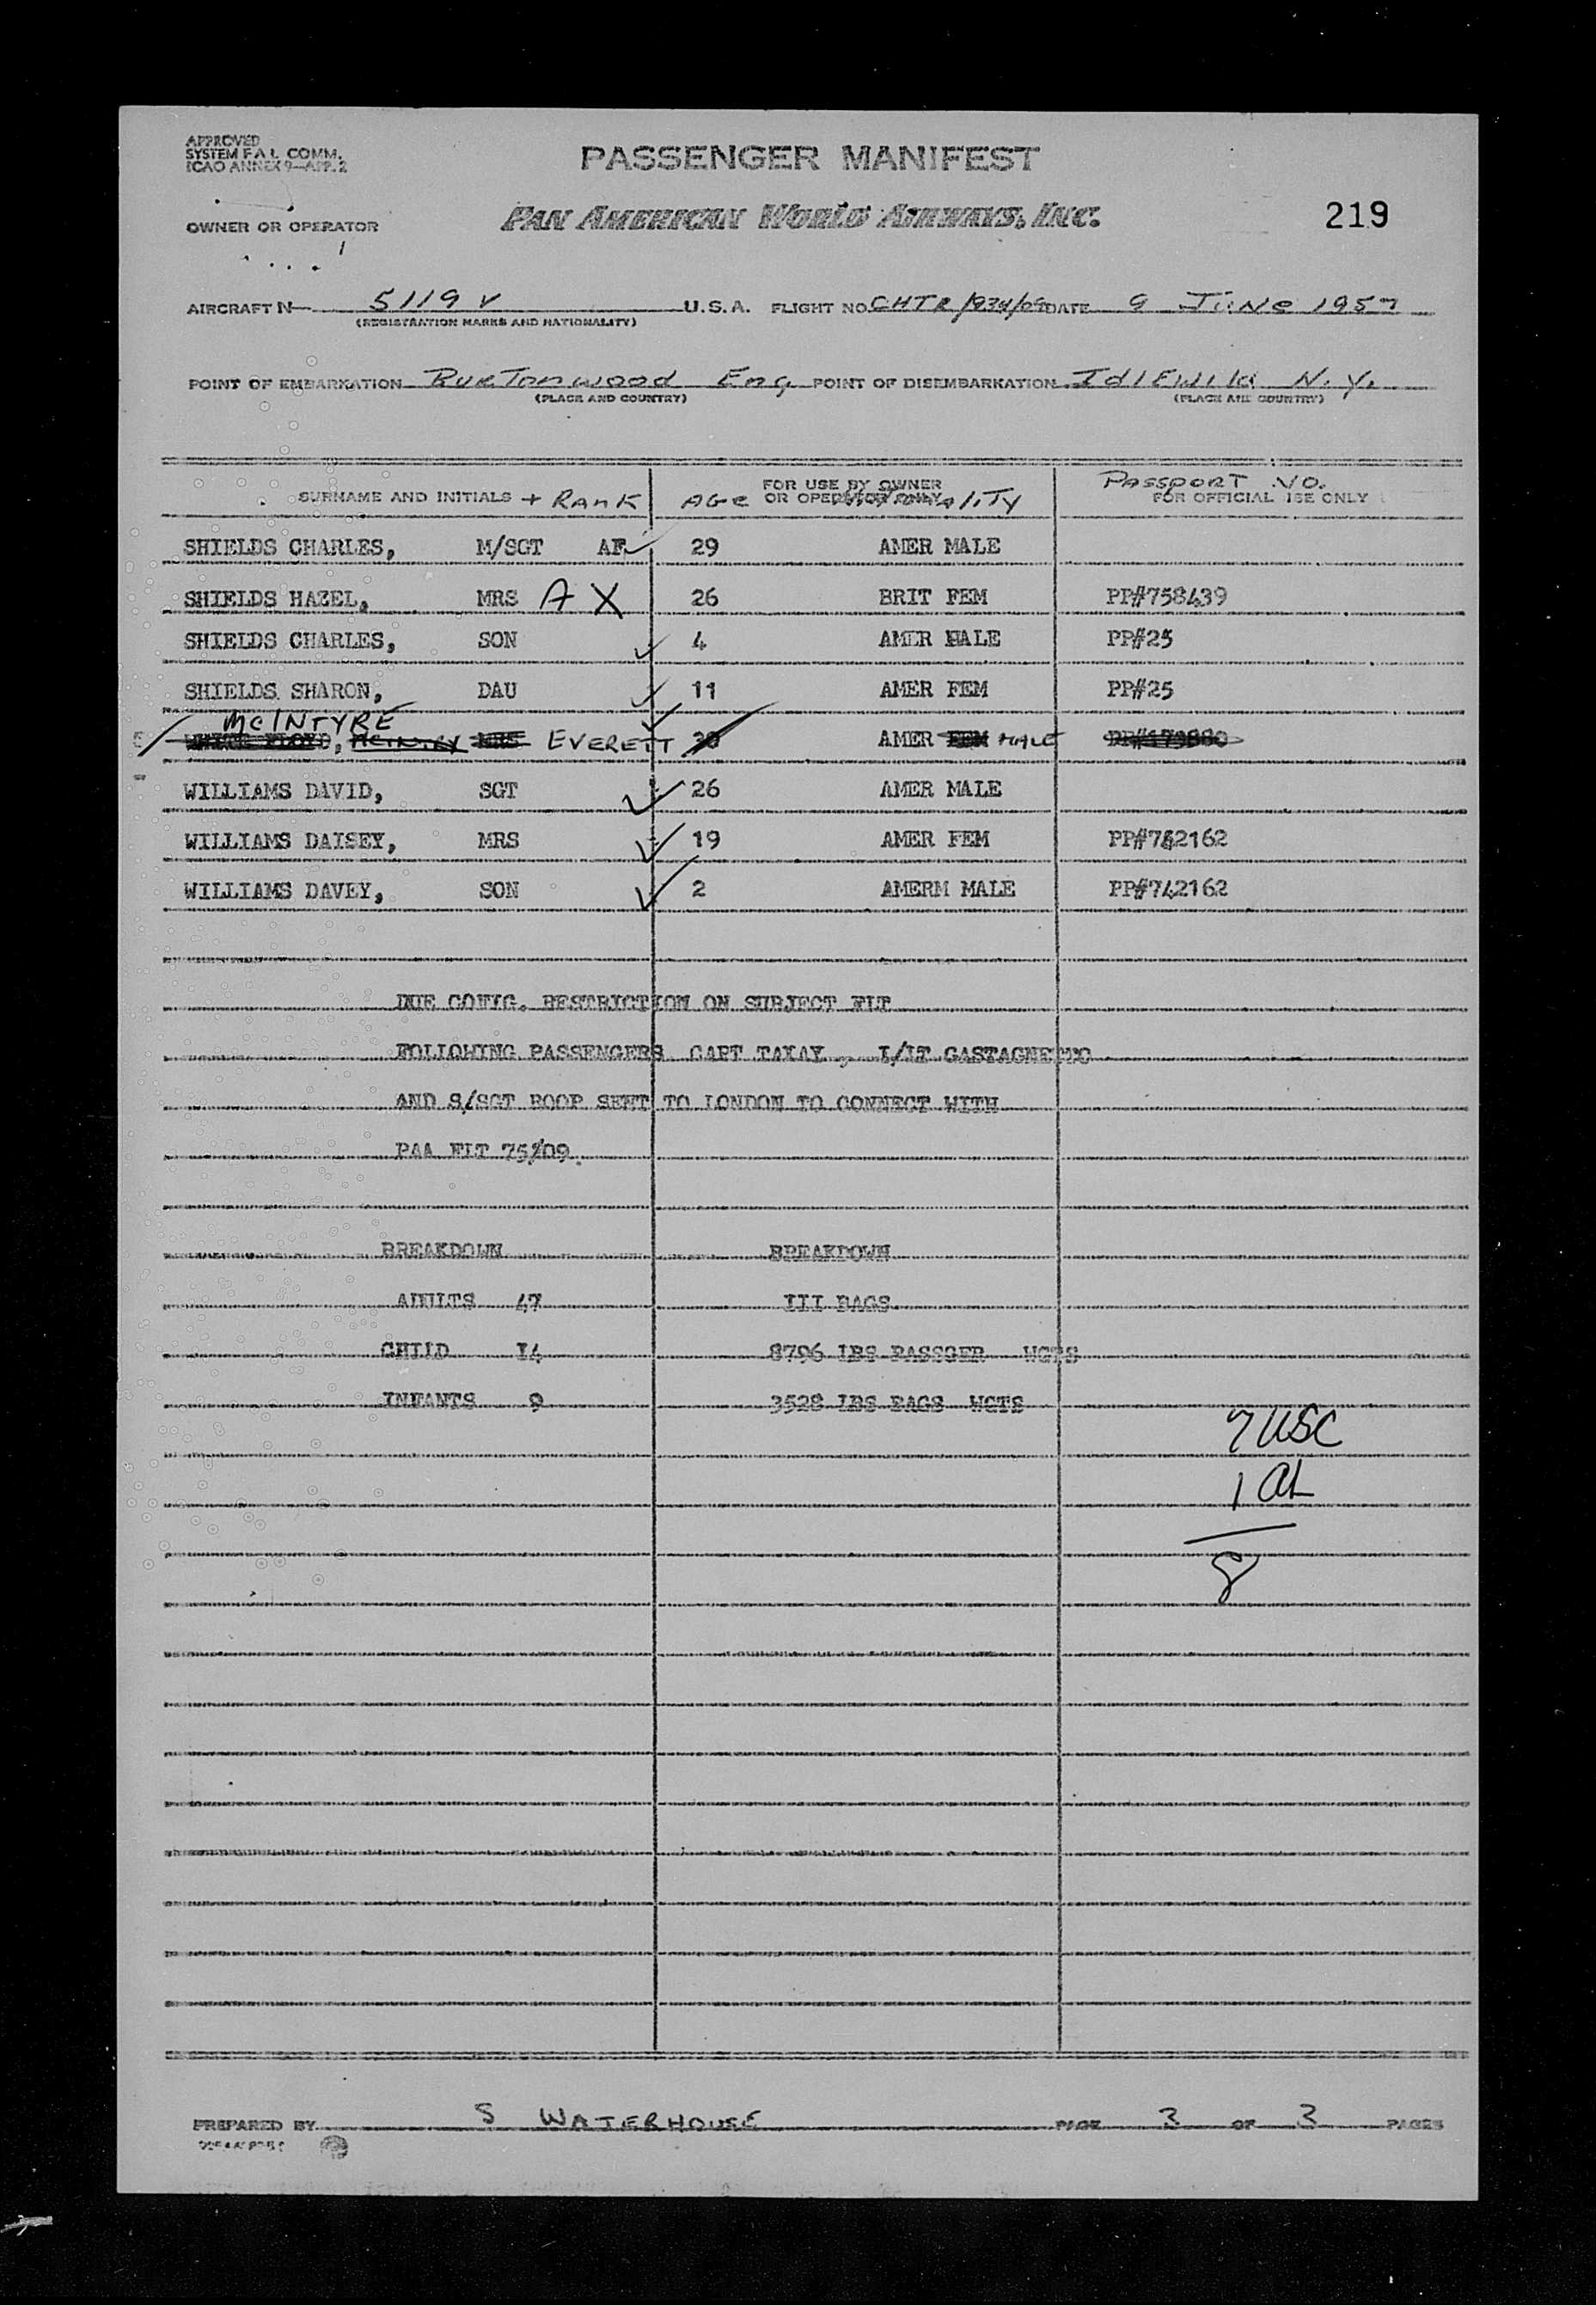 APPROVED
SYSTEM F A L COMM.
ICAO ANNEX 9—APP. 2
PASSENGER MANIFEST
OWNER OR OPERATOR
PAN AMERICAN WORLD AIRWAYS, INC.
219
AIRCRAFT N 5119 V U.S.A. FLIGHT NO. CHTR/934/09 DATE 9 June 1957
(REGISTRATION MARKS AND NATIONALITY)
POINT OF EMBARKATION Burtonwood Eng POINT OF DISEMBARKATION Idlewild N.Y.
(PLACE AND COUNTRY) (PLACE AND COUNTRY)
SURNAME AND INITIALS + Rank Age FOR USE BY OWNER OR OPERATOR ONLY Nationality Passport No. FOR OFFICIAL USE ONLY
SHIELDS CHARLES, M/SGT AF 29 AMER MALE
SHIELDS HAZEL, MRS A X 26 BRIT FEM PP#758439
SHIELDS CHARLES, SON 4 AMER MALE PP#25
SHIELDS SHARON, DAU 11 AMER FEM PP#25
McINTYRE
MRS EVERETT AMER FEM MALE PP#179880
WILLIAMS DAVID, SGT 26 AMER MALE
WILLIAMS DAISEY, MRS 19 AMER FEM PP#742162
WILLIAMS DAVEY, SON 2 AMERM MALE PP#742162
DUE CONIG. RESTRICTION ON SUBJECT FLT
FOLLOWING PASSENGERS CAPT TAXAY , I/LT GASTAGNETTO
AND S/SGT ROOP SENT TO LONDON TO CONNECT WITH
PAA FLT 75/09.
BREAKDOWN BREAKDOWN
ADULTS 47 III BAGS
CHILD I4 8796 LBS PASSGER WGTS
INFANTS 9 3528 LBS BAGS WGTS
7 USC
1 AL
8
PREPARED BY S WATERHOUSE PAGE 3 OF 3 PAGES